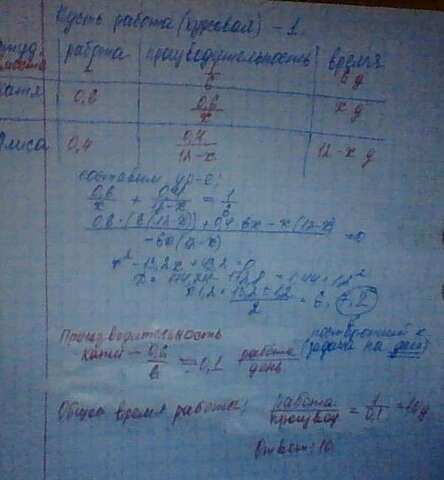 Пусть работа (курсовая) - 1.
работа производительность время
1 1/6 6 д
Катя 0,6 0,6/x x д
Алиса 0,4 0,4/12-x 12-x д
составим ур-е:
0,6/x + 0,4/12-x = 1/6
x² - 13,2x + 43,2 = 0
= 1,44 = 1,2²
x1,2 = 13,2 ± 1,2 / 2 = 6; 7,2
Производительность
Кати - 0,6/6 = 0,1 работа/день
посторонний к
(задача на дни)
Общее время работы: работа/производ = 1/0,1 = 10 д
Ответ: 10